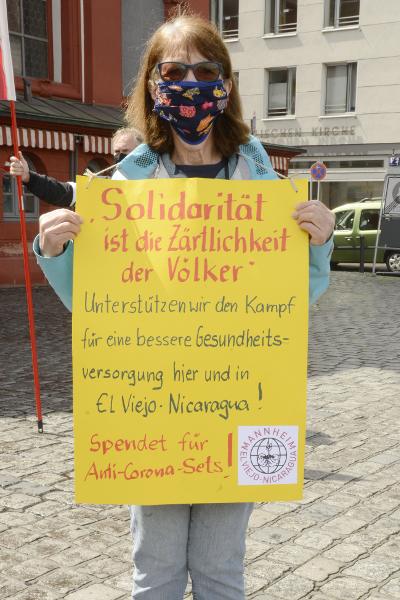 „Solidarität
ist die Zärtlichkeit
der Völker"
Unterstützen wir den Kampf
für eine bessere Gesundheits-
versorgung hier und in
El Viejo-Nicaragua!
Spendet für
Anti-Corona-Sets!
MANNHEIM
EL VIEJO-NICARAGUA
ISCHEN KIRCHE